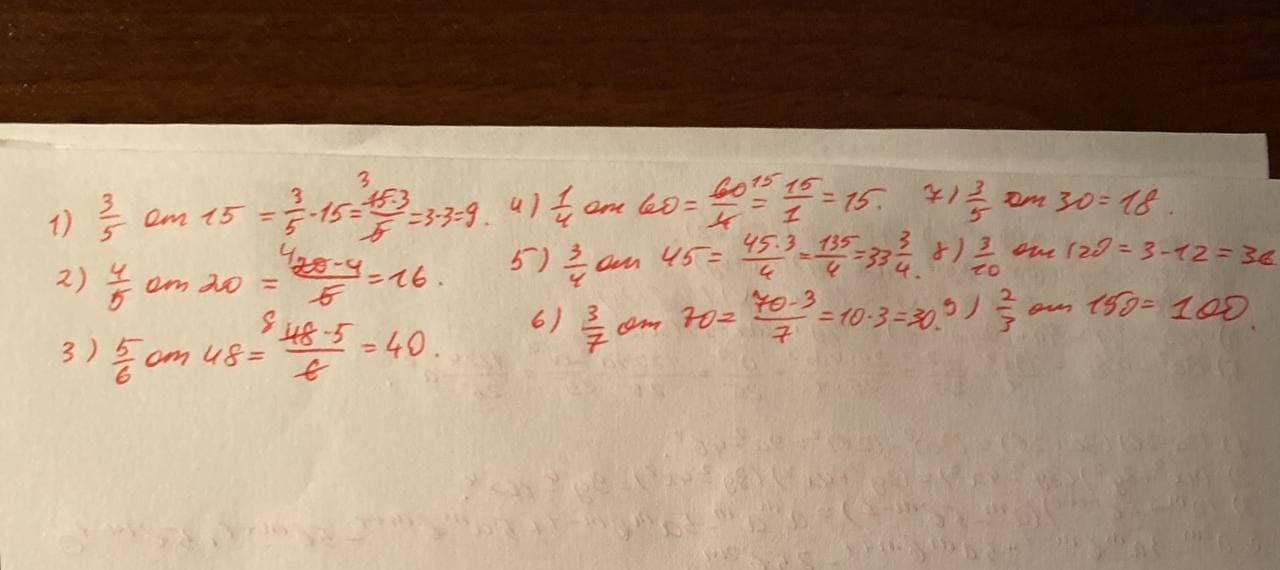 1) 3/5 от 15 = 3/5 · 15 = 15·3/5 3 = 3·3=9.
2) 4/5 от 20 = 4 20·4/5 = 16.
3) 5/6 от 48 = 8 48·5/6 = 40.
4) 1/4 от 60 = 60/4 15 = 15/1 = 15.
5) 3/4 от 45 = 45·3/4 = 135/4 = 33 3/4.
6) 3/7 от 70 = 70·3/7 = 10·3=30.
7) 3/5 от 30 = 18.
8) 3/10 от 120 = 3·12 = 36
9) 2/3 от 150 = 100.